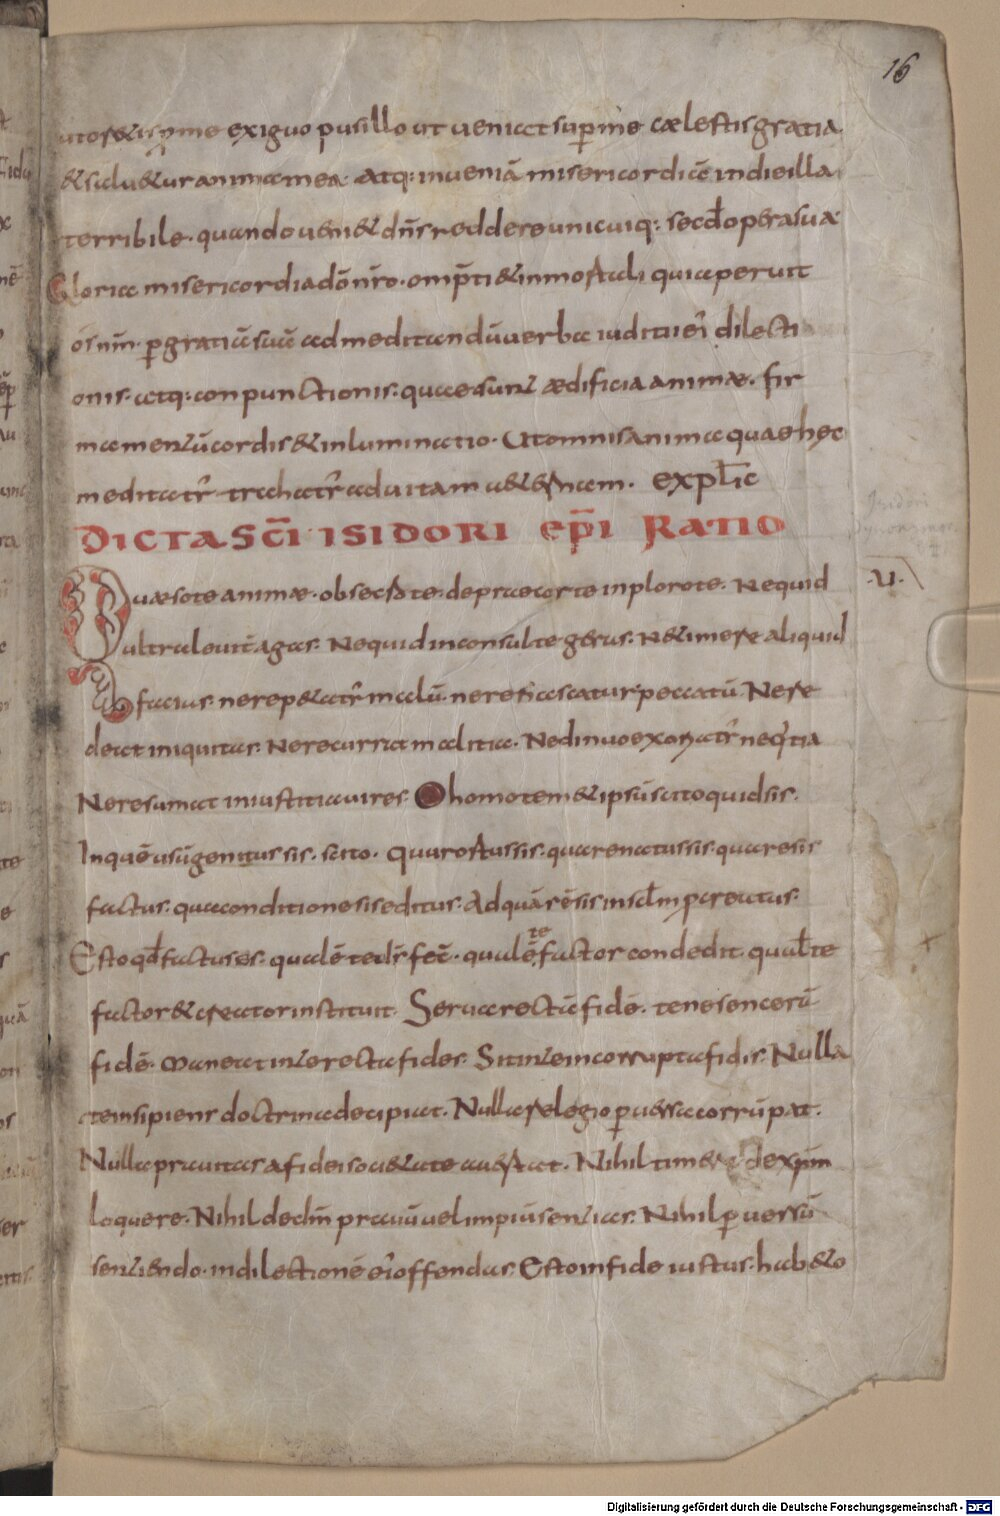 16
exiguo pusillo ut veniat sup me cælestis gratia
& salu&ur anima mea. atq: inueniā misericordiā in die illa
terribile. quando ueni& dn̄s reddere unicuiq: secd̄ opera suæ
Gloria misericordia dō nr̄o. omp̄ti & inmortali qui aperuit
os m̄m. p gratiā suā ad meditandū uerba iuditii ei dilecti
onis. atq: conpunctionis. quae sunt ædificia animæ. fir
mamentū cordis & inluminatio. Ut omnis anima quae hęc
meditatr̄ trahatr̄ ad uitam &ernam. expl̄ic
DICTA SC̄I ISIDORI EP̄I RATIO
Quæso te animæ. obsecro te. depraecor te inploro te. Nequid
ultra leuit̄ agas. Nequid inconsulte geras. N& temere aliquid
facias. ne rep&atr̄ malū. ne renascatur peccatū. Nere
deat iniquitas. Ne recurrat malitia. Ne dinuo exoriatr̄ neq̇tia
Ne resumat iniustitia uires. O homo tem&ipsū scito quid sis.
In quē usū genitus sis. scito. Quur ortus sis. quare natus sis. quare sis
factus. qua conditione sis editus. Ad quā rē sis in scl̄m pcreatus.
Esto qd̄ factus es. qualē te ds̄ fec̄. qualē te factor condedit. qual̄ te
factor & creator instituit. Serua rectā fidē. tene sencerū
fidē. Maneat in te recta fides. Sit in te incorrupta fidis. Nulla
te insipiens doctrina decipiat. Nulla relegio puersa corrūpat.
Nulla prauitas a fidei soli&ate auertat. Nihil timere de xp̄m
loquere. Nihil de dm̄ prauū uel impiū sentias. Nihil peruersū
sentiendo. in dilectionē ei offendas. Esto in fide iustus. hab&o
Isidori
.U.
Digitalisierung gefördert durch die Deutsche Forschungsgemeinschaft - DFG